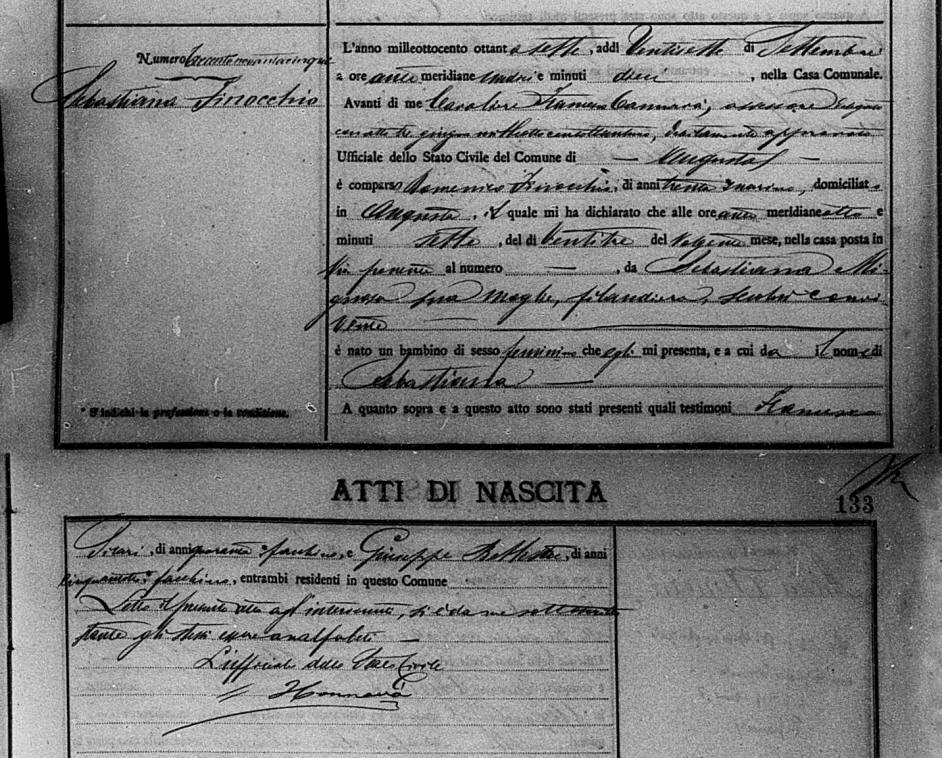 Numero trecentonovantacinque
Sebastiana Finocchio
* S'indichi la professione o la condizione.
L'anno milleottocento ottantasette, addì Ventisette di Settembre
a ore anti meridiane undici e minuti dieci, nella Casa Comunale.
Avanti di me Cavaliere Francesco Cannavà, assessore delegato
con atto tre giugno milleottocentottantuno, debitamente approvato
Ufficiale dello Stato Civile del Comune di Augusta
è comparso Domenico Finocchio, di anni trenta marino, domiciliato
in Augusta, il quale mi ha dichiarato che alle ore anti meridiane otto e
minuti sette, del dì Ventitre del volgente mese, nella casa posta in
Via ponente al numero —, da Sebastiana Mi-
gnosa sua moglie, filandiera, seco lui convi-
vente
è nato un bambino di sesso femminino che egli mi presenta, e a cui da il nome di
Sebastiana
A quanto sopra e a questo atto sono stati presenti quali testimoni Francesco
ATTI DI NASCITA
133
di anni quaranta facchino, e Giuseppe di anni
facchino, entrambi residenti in questo Comune
Letto il presente atto agl'intervenuti, si è da me sottoscritto
stante gli stessi essere analfabeti
L'ufficiale dello Stato Civile
F Cannavà